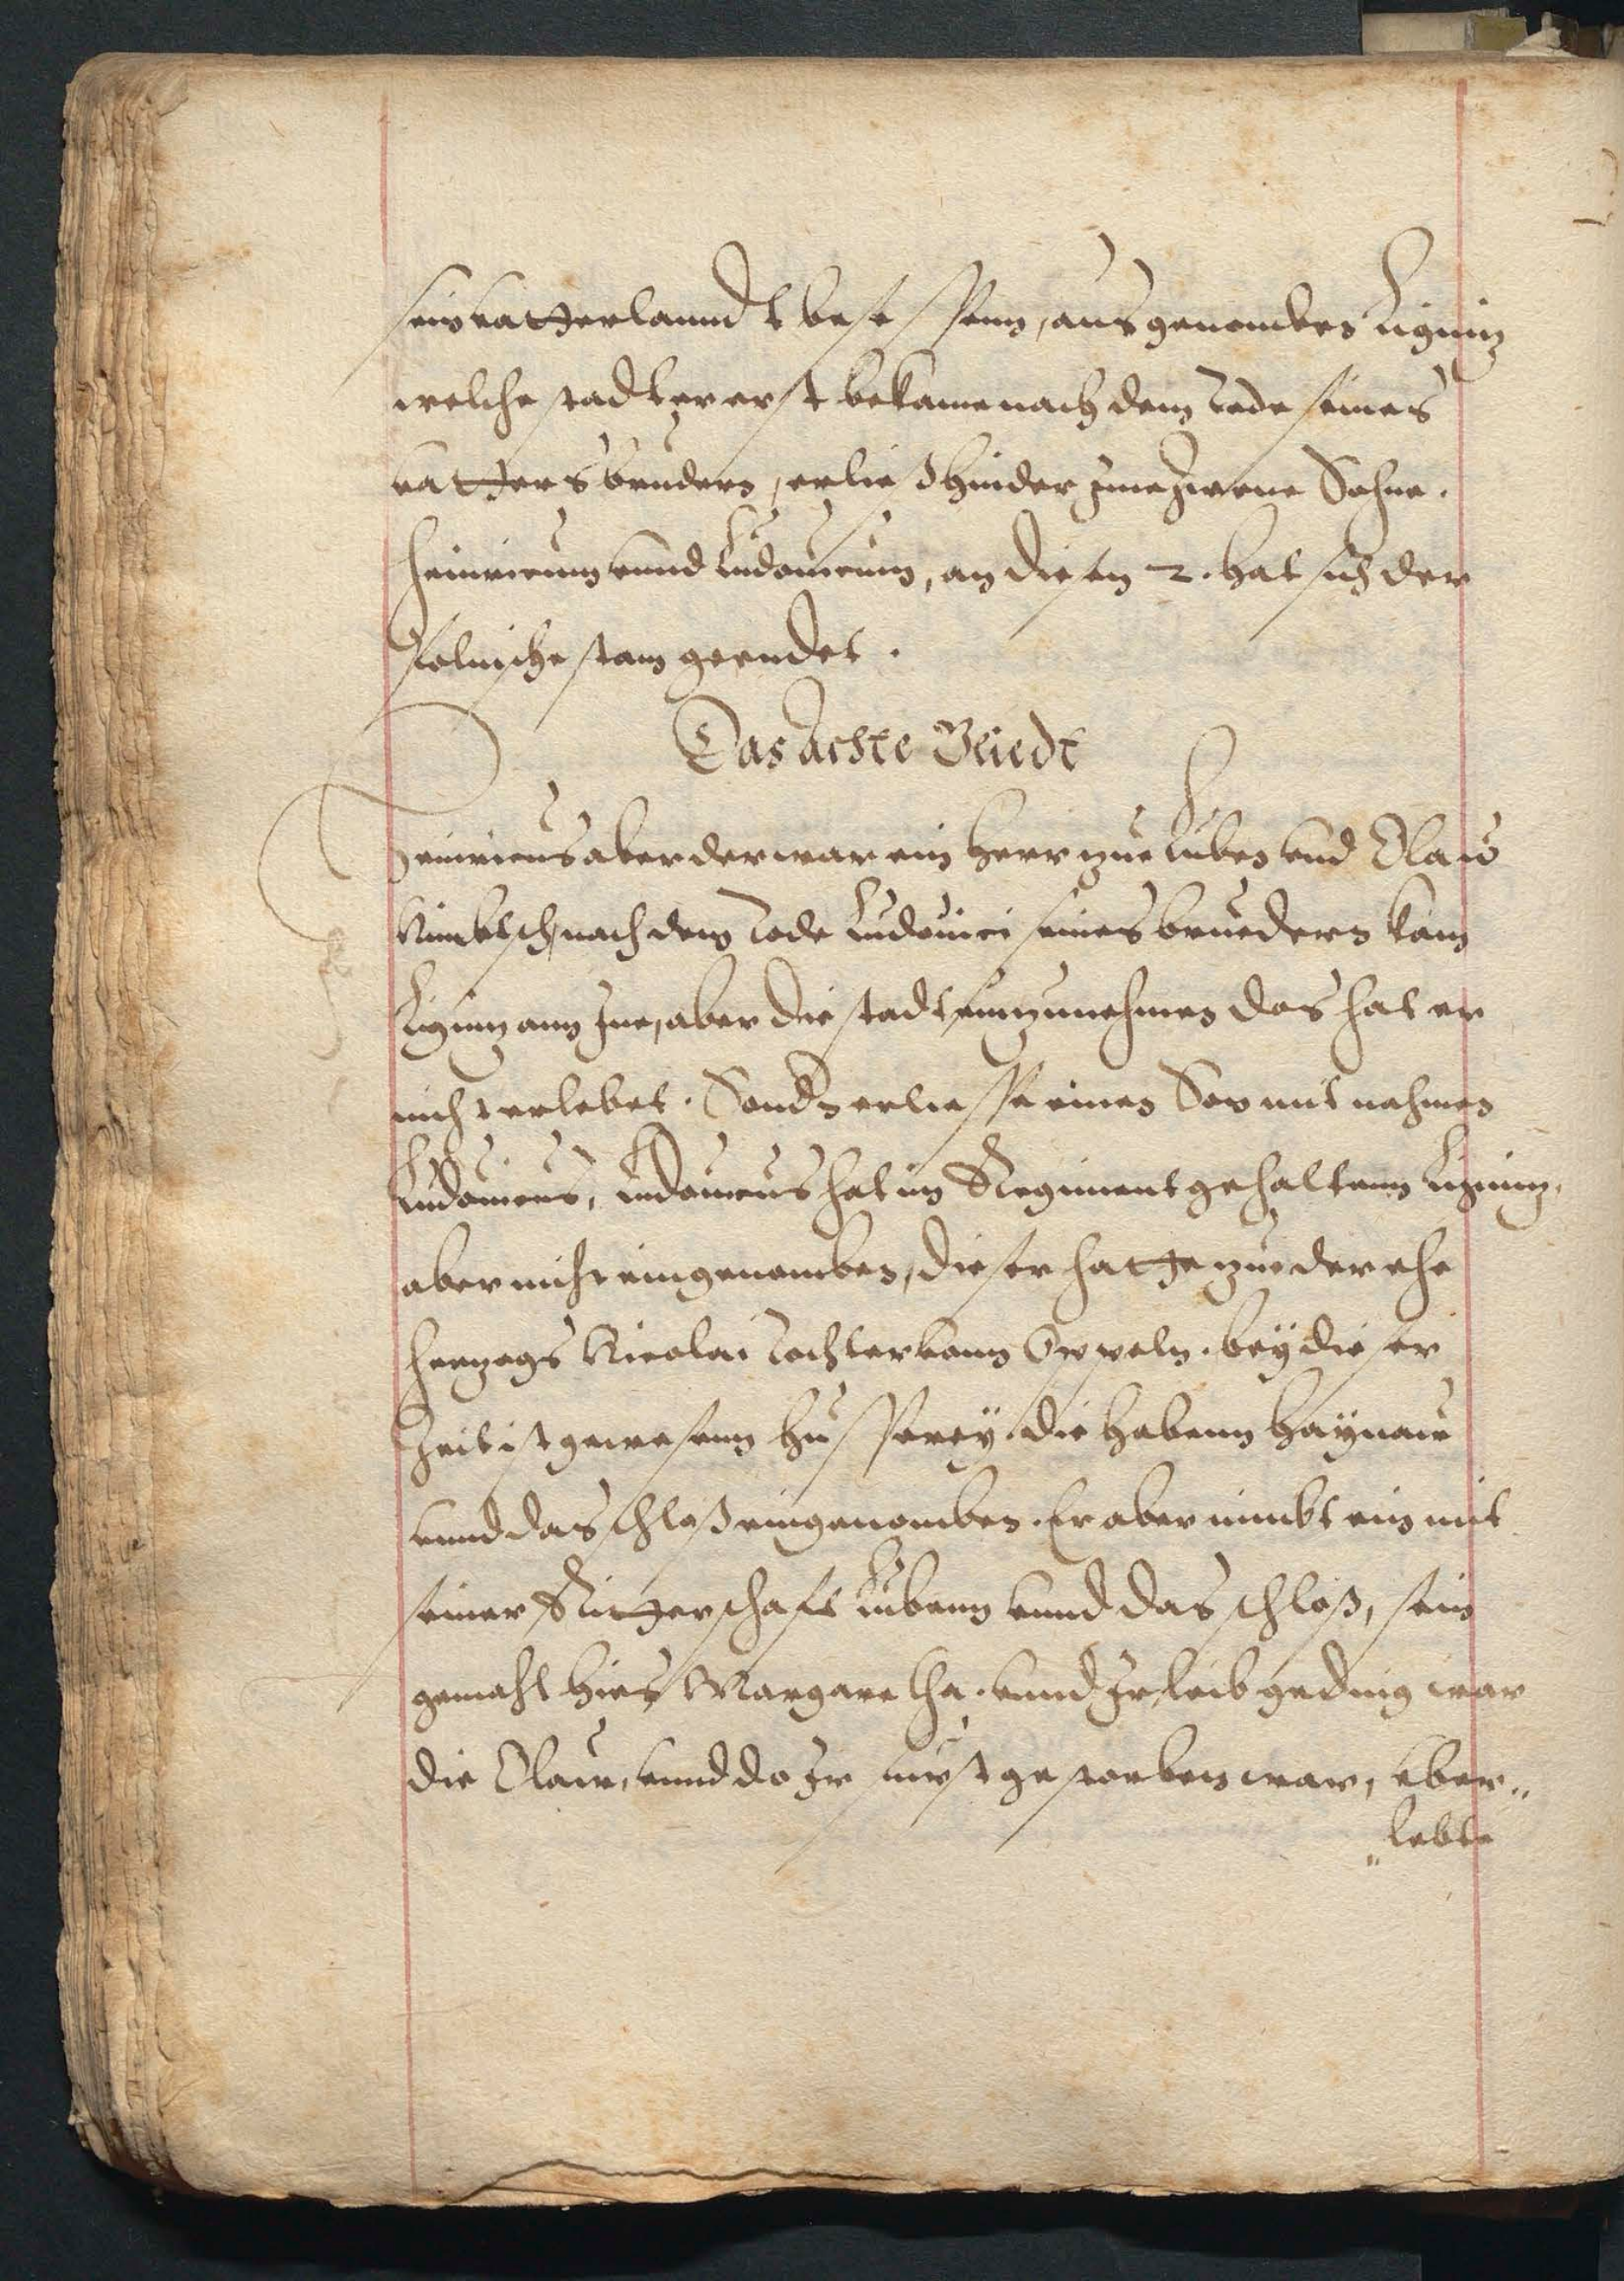 sein vatterlanndt besessenn, ausgenomben Lignitz
welche stadt er erst bekame nach dem Tode seines
vatters bruders, er ließ hinder Jme Zwene Sohne.
Heinricum vnnd Ludouicum, an diesen 2. hat sich der
Polnische stam geendet.
Das Achte Gliedt
Heinricus aber der war ein Herr zue Luben vnd Olaw
Nimbtsch, nach dem Tode Ludouici seines bruedern kam
Lignitz ann Jne, aber die stadt einzunehmen das hat er
nicht erlebet. Sondern er liesse einen Son mit nahmen
Ludouicus, Ludouicus hat im Regiment gehaltenn Lignitz,
aber nicht eingenomben, dieser hatte zue der ehe
Hertzogs Nicolai Tochter vonn Oppeln. bey dieser
Zeit ist gewesenn Hussserey. die habenn Haynaw
vnnd das schloß eingenomben. Er aber nimbt ein mit
seiner Ritterschafft Lubenn vnnd das schloß, sein
gemahl hies Margaretha. vnnd Jr leibgeding war
die Olaw, vnnd do Jr furst gestorben war, vber„
„lebte